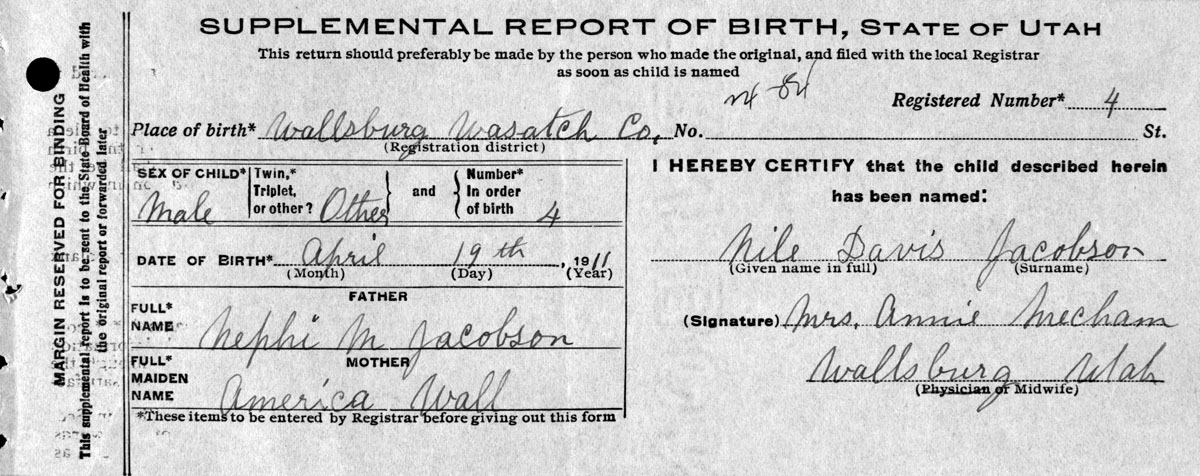 SUPPLEMENTAL REPORT OF BIRTH, STATE OF UTAH
This return should preferably be made by the person who made the original, and filed with the local Registrar
as soon as child is named
Registered Number* 4
Place of birth* Wallsburg Wasatch Co, No. St.
(Registration district)
SEX OF CHILD* Male
Twin,* Triplet, or other? Other
and
Number* In order of birth 4
DATE OF BIRTH* April 19th, 1911
(Month) (Day) (Year)
FATHER
FULL* NAME Nephi M Jacobson
MOTHER
FULL* MAIDEN NAME America Wall
*These items to be entered by Registrar before giving out this form
I HEREBY CERTIFY that the child described herein
has been named:
Nile Davis Jacobson
(Given name in full) (Surname)
(Signature) Mrs. Annie Mecham
Wallsburg Utah
(Physician or Midwife)
MARGIN RESERVED FOR BINDING
This supplemental report is to be sent to the State Board of Health with
the original report or forwarded later